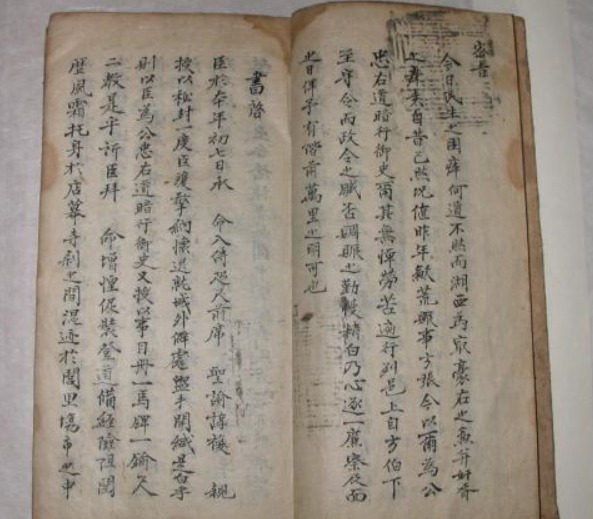 密旨
今日民生之困瘁何道不然而湖西為最豪右之兼并奸胥
之舞弄自昔已然況值昨年歉荒賑事方張今以爾為公
忠右道暗行御史爾其無憚勞苦遍行列邑上自方伯下
至守令而政令之臧否賙賑之勤慢精白乃心逐一廉察及面
之日俾予有階前萬里之明可也
書啓
臣於年初七日承 命入侍咫尺前席 聖諭諄複 親
授以秘封一度臣雙擎納懷退城外僻處盥手開緘是白乎
則以臣為公忠右道暗行御史又授以事目冊一馬牌一鍮尺
二教是乎所臣拜 命增惶促裝登道備經險阻閱
歷風霜托身於店幕寺刹之間混迹於閭里場市之中